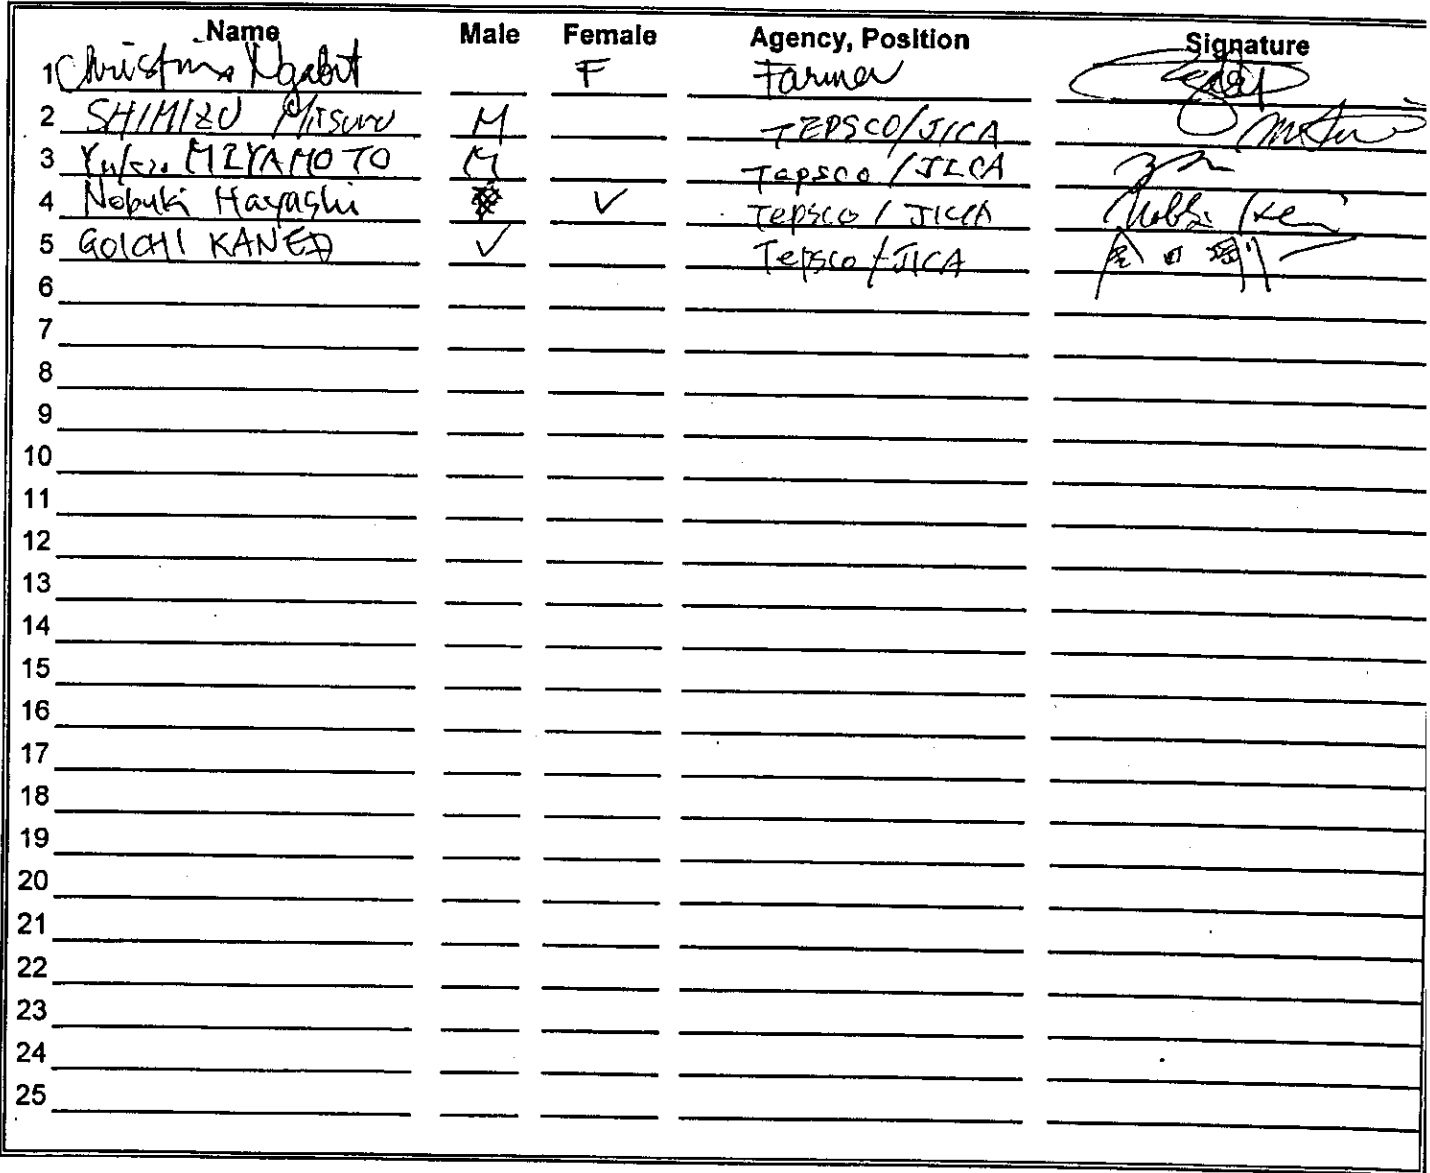 Name Male Female Agency, Position Signature
1 Christina Ngabit F Farmer
2 SHIMIZU Mitsuru M TEPSCO/JICA
3 MIYAMOTO M Tepsco/JICA
4 Nobuki Hayashi ✓ Tepsco/JICA
5 GOICHI KANEDA ✓ Tepsco/JICA
6
7
8
9
10
11
12
13
14
15
16
17
18
19
20
21
22
23
24
25